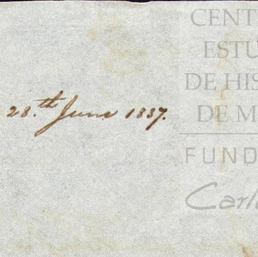 CENT
ESTU
DE HIS
DE M
28.th June 1837.
FUND
Carl